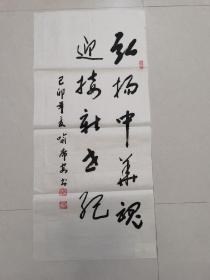 弘扬中华魂
迎接新世纪
己卯年夏喻席安书